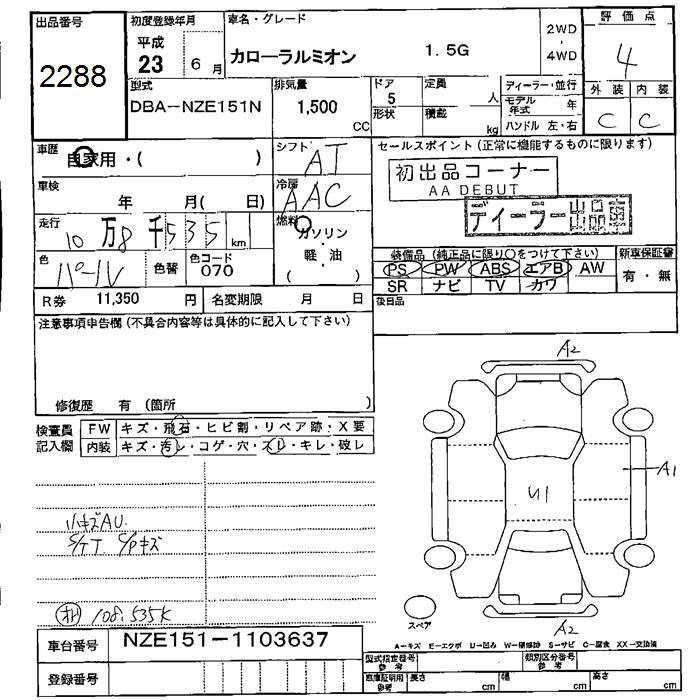 出品番号
2288
初度登録年月
平成
23 6月
車名・グレード
カローラルミオン 1.5G
2WD
・
4WD
評価点
4
外装 内装
C C
型式
DBA-NZE151N
排気量
1,500
CC
ドア
5
形状
定員
人
積載
kg
ディーラー・並行
モデル年式 年
ハンドル 左・右
車歴
自家用・( )
シフト
AT
車検
年 月( 日)
冷房
AAC
走行
10万8千535 km
燃料
ガソリン
・
軽・油
( )
色
パール
色替
色コード
070
R券 11,350 円
名変期限 月 日
セールスポイント (正常に機能するものに限ります)
初出品コーナー
AA DEBUT
ディーラー出品車
装備品 (純正品に限り○をつけて下さい)
PS PW ABS エアB AW
SR ナビ TV カワ
新車保証書
有・無
後日品
注意事項申告欄 (不具合内容等は具体的に記入して下さい)
修復歴 有 (箇所 )
検査員
記入欄
FW キズ・飛石・ヒビ割・リペア跡・X要
内装 キズ・汚レ・コゲ・穴・スレ・キレ・破レ
ハキズAU.
S/TT C/Pキズ
108.535K
車台番号 NZE151-1103637
登録番号
A2
A1
U1
A2
スペア
A-キズ E-エクボ U-凹み W-補修跡 S-サビ C-腐食 XX-交換済
型式指定番号
参考
類別区分番号
参考
車庫証明用
参考
長さ cm
幅 cm
高さ cm